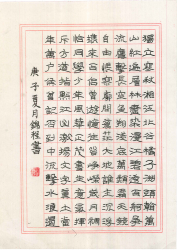 獨立寒秋湘江北去橘子洲頭看萬
山紅遍層林盡染漫江碧透百舸爭
流鷹擊長空魚翔淺底萬類霜天競
自由悵寥廓問蒼茫大地誰主沉浮
攜來百侶曾遊憶往昔崢嶸歲月稠
恰同學少年風華正茂書生意氣揮
斥方遒指點江山激揚文字糞土當
年萬戶侯曾記否到中流擊水浪遏
庚子夏月錦程書